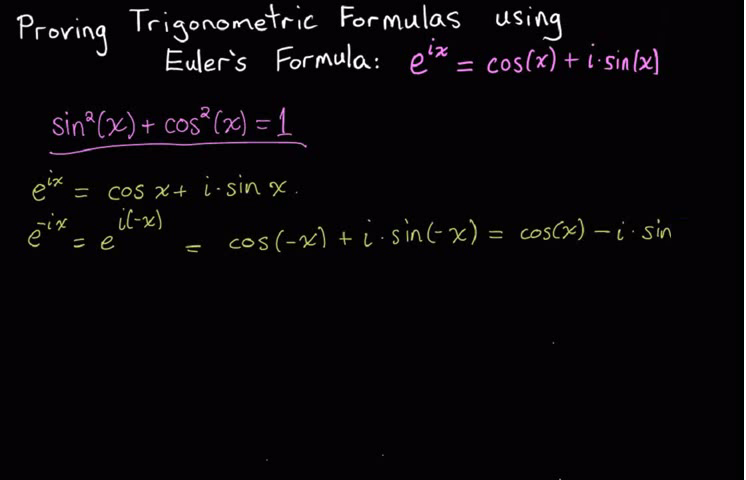 Proving Trigonometric Formulas using
Euler's Formula: e^{ix} = cos(x) + i·sin(x)
sin²(x) + cos²(x) = 1
e^{ix} = cos x + i·sin x.
e^{-ix} = e^{i(-x)} = cos(-x) + i·sin(-x) = cos(x) - i·sin